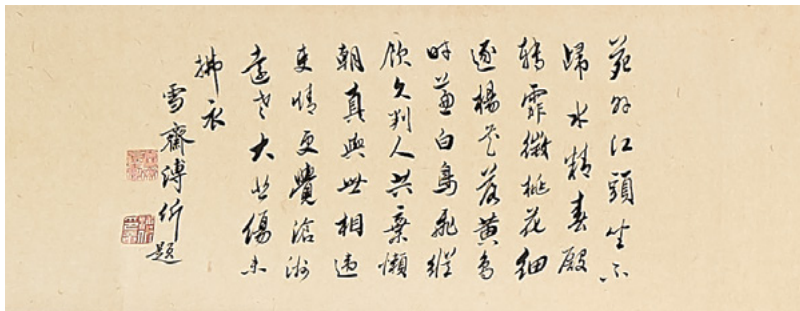 苑外江頭坐不
歸水精春殿
轉霏微桃花細
逐楊花落黃鳥
時兼白鳥飛縱
飲久判人共棄懶
朝真與世相違
吏情更覺滄洲
遠老大悲傷未
拂衣
雪齋溥伒題